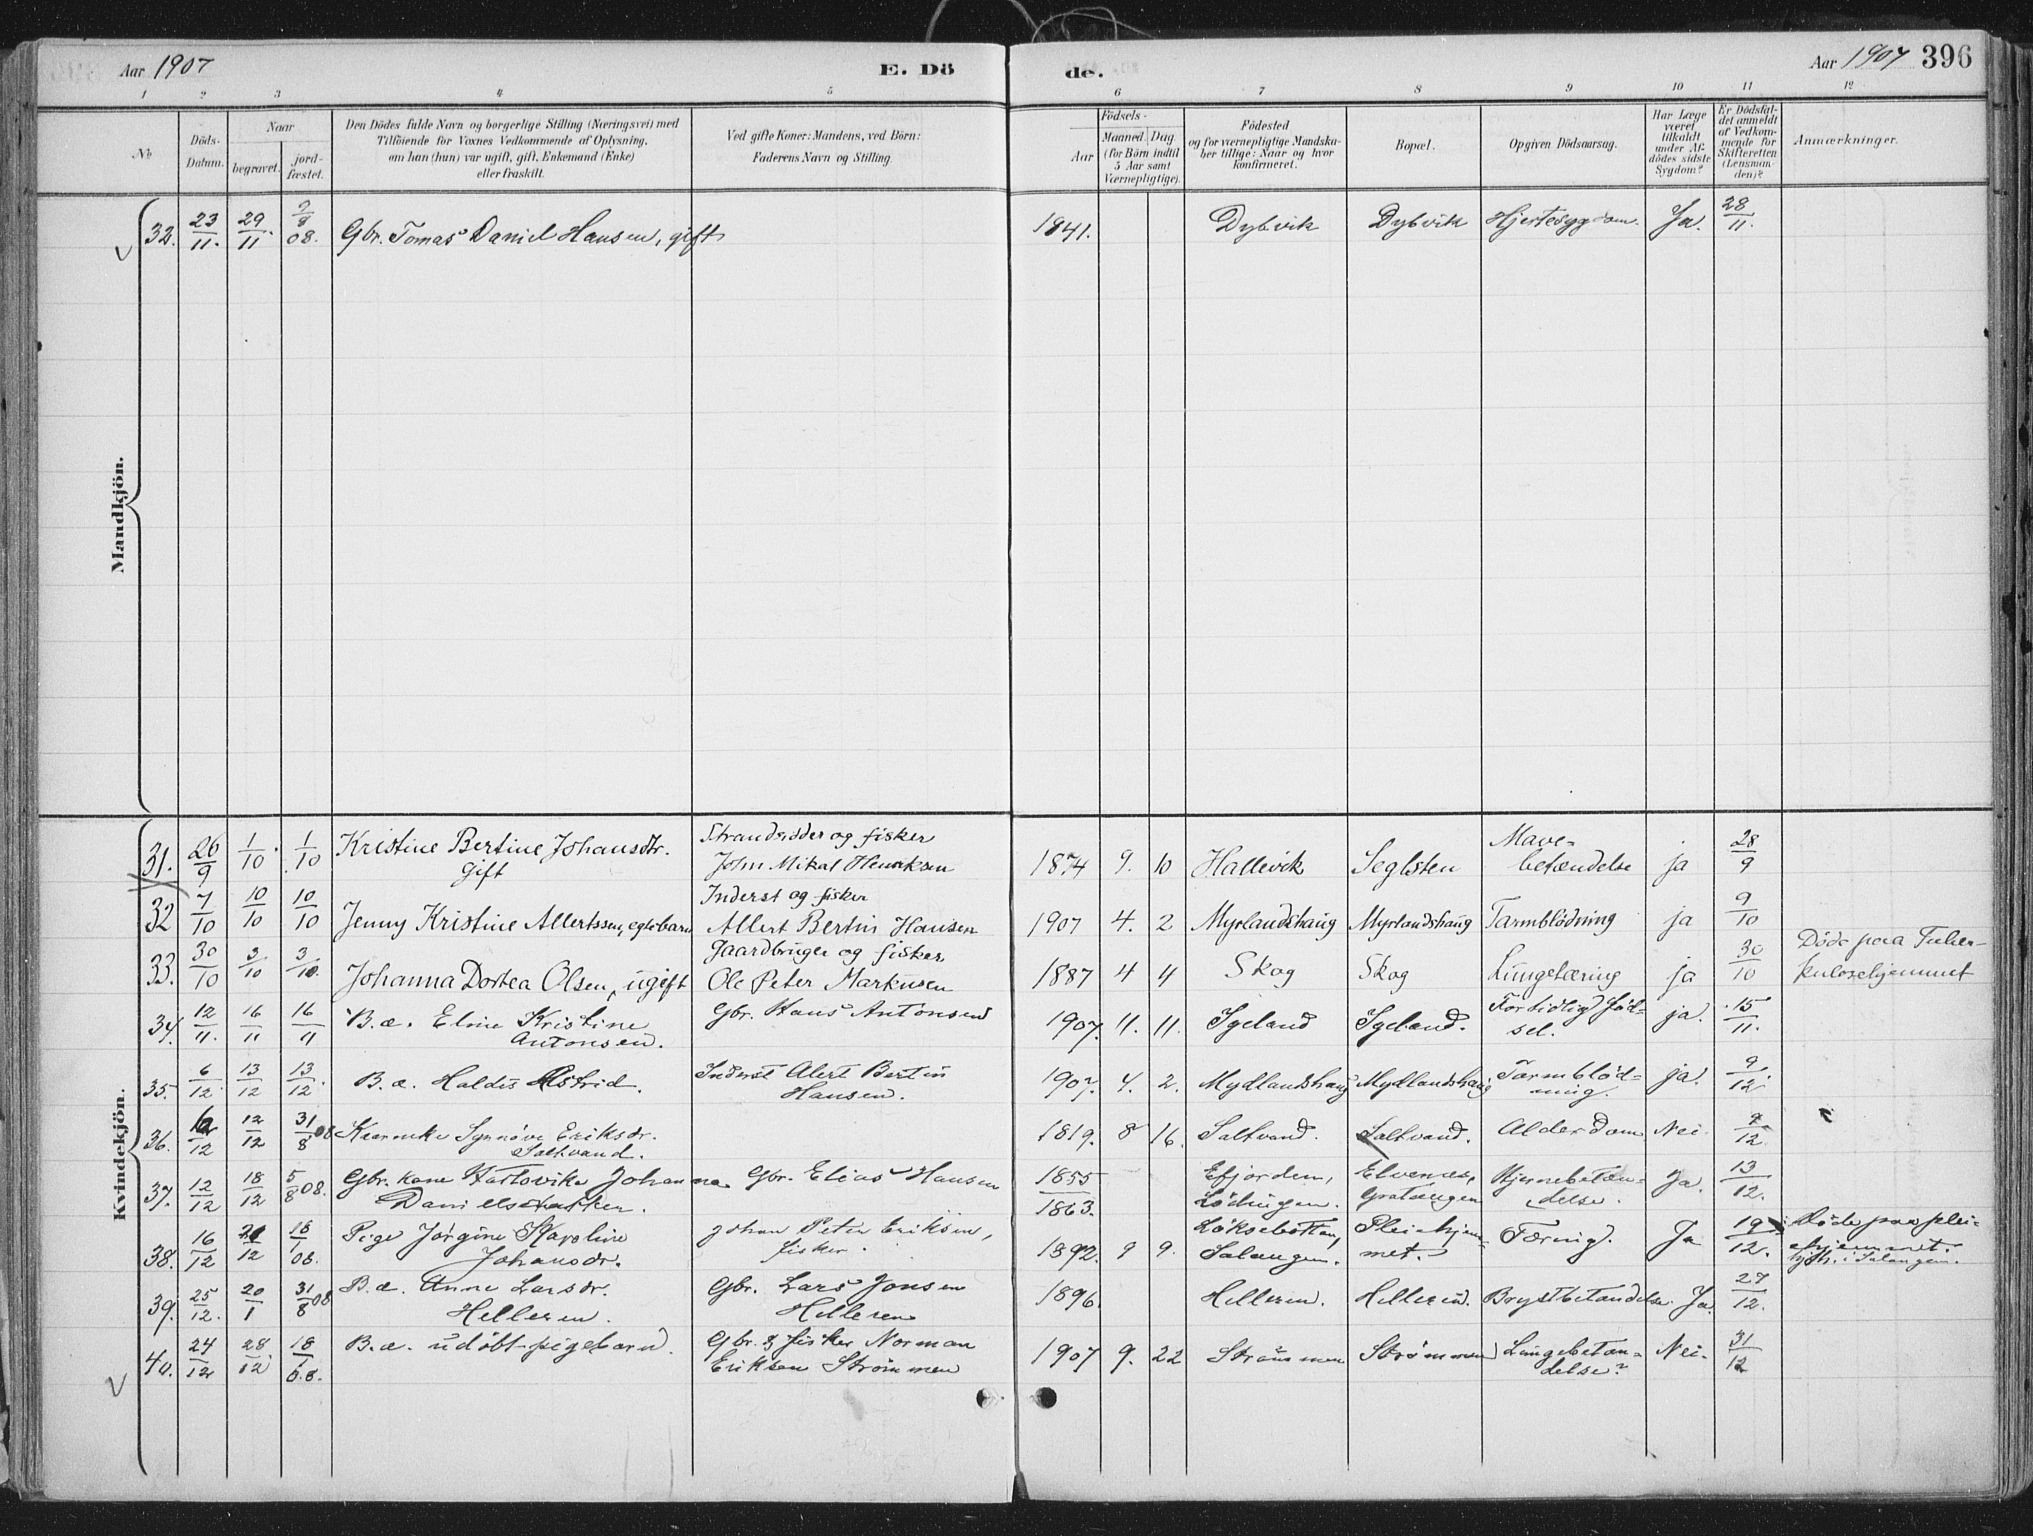 Aar 1907 E. Dö de. Aar 1907 396
1 2 3 4 5 6 7 8 9 10 11 12
No
Döds-Datum.
Naar
begravet.
jord-fæstet.
Den Dödes fulde Navn og borgerlige Stilling (Næringsvei) med
Tilföiende for Voxnes Vedkommende af Oplysning,
om han (hun) var ugift, gift, Enkemand (Enke)
eller fraskilt.
Ved gifte Koner: Mandens, ved Börn:
Faderens Navn og Stilling.
Födsels-
Aar
Maaned Dag
(for Börn indtil
5 Aar samt
Værnepligtige).
Födested
og for værnepligtige Mandska-
ber tillige: Naar og hvor
konfirmeret.
Bopæl.
Opgiven Dödsaarsag.
Har Læge
været
tilkaldt
under Af-
dödes sidste
Sygdom?
Er Dödsfal-
det anmeldt
af Vedkom-
mende for
Skifteretten
(Lensman-
den)?
Anmærkninger.
Mandkjön.
32. 23/11. 29/11. 08. Gbr. Tomas Daniel Hansen, gift 1841. Dybvik Dybvik Hjertesygdom. Ja. 28/11.
Kvindekjön.
31. 26/9 1/10. 1/10 Kristine Bertine Johansdtr. gift Strandsidder og fisker John Mikal Henriksen 1874 9. 10 Hallevik Seglsten Mave-betændelse ja 28/9
32 7/10 10/10 10/10 Jenny Kristine Allertssen, egtebarn Inderst og fisker Allert Bertin Hansen 1907 4. 2 Myrlandshaug Myrlandshaug Tarmblødning ja 9/10
33. 30/10 3/10 3/10. Johanna Dortea Olsen, ugift Gaardbruger og fisker Ole Peter Markusen 1887 4 4 Skog Skog Lungetæring ja 30/10 Døde paa Tuber-kulosehjemmet
34. 12/11. 16/11 16/11 B.æ. Eline Kristine Antonsen. Gbr. Hans Antonsen 1907. 11. 11. Igeland Igeland. For tidlig fød-sel. ja. 15/11.
35. 6/12. 13/12 13/12. B.æ. Haldis Astrid. Inderst Alert Bertin Hansen. 1907. 4. 2. Mydlandshaug Mydlandshaug Tarmblød-ning. ja. 9./12.
36. 12/12 31/8 08 Synnøve Eriksdr. Saltvand. 1819. 8 16. Saltvand. Saltvand. Alderdom Nei. 12.
37. 12/12 18/12 5/8 08. Gbr. kone Hartovika Johanna Daniels Gbr. Elias Hansen 1855 1863. Efjorden, Lødingen. Elvenes, Gratangen Hjernebetæn-delse. Ja. 13/12.
38. 16/12 08. Pige Jørgine Karoline Johansdr. Johan Peter Eriksen, fisker. 1892. 9 9. Løksebotten, Salangen. Pleiehjem-met. Tæring. Ja 19/12. Døde paa plei-ehjemmet. i Salangen.
39. 25/12. 20/1 31/8 08 B.æ. Anne Larsdr. Helleren. Gbr. Lars Jonsen Helleren 1896. Helleren. Helleren. Brystbetændelse. Ja. 27/12.
40. 24/12 28/12. 18/1 08. B.æ. udøbt pigebarn. Gbr. & fisker Norman Eriksen Strømmen 1907 9. 22 Strømmen Strømmen Lungebetæn-delse? Nei. 31/12